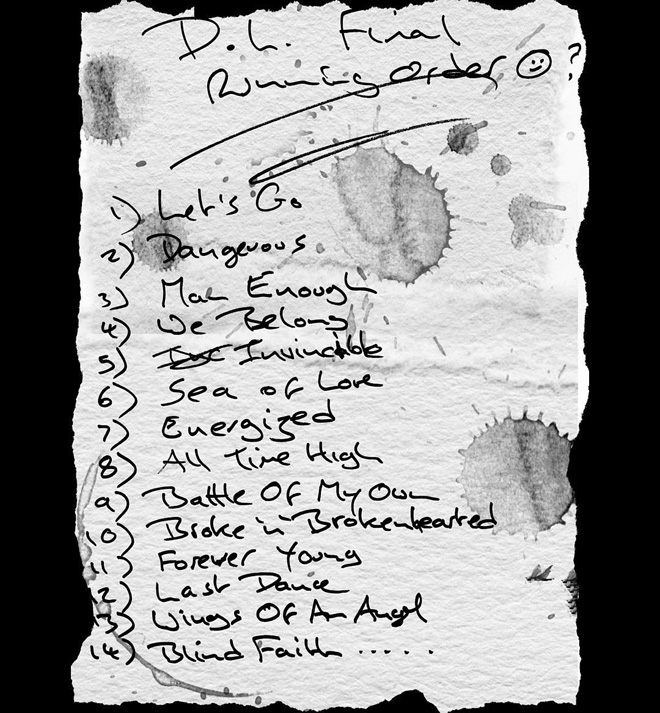 D.L. Final
Running Order ?
1) Let's Go
2) Dangerous
3) Man Enough
4) We Belong
5) Invincible
6) Sea of Love
7) Energized
8) All Time High
9) Battle Of My Own
10) Broke 'n' Brokenhearted
11) Forever Young
12) Last Dance
13) Wings Of An Angel
14) Blind Faith .....